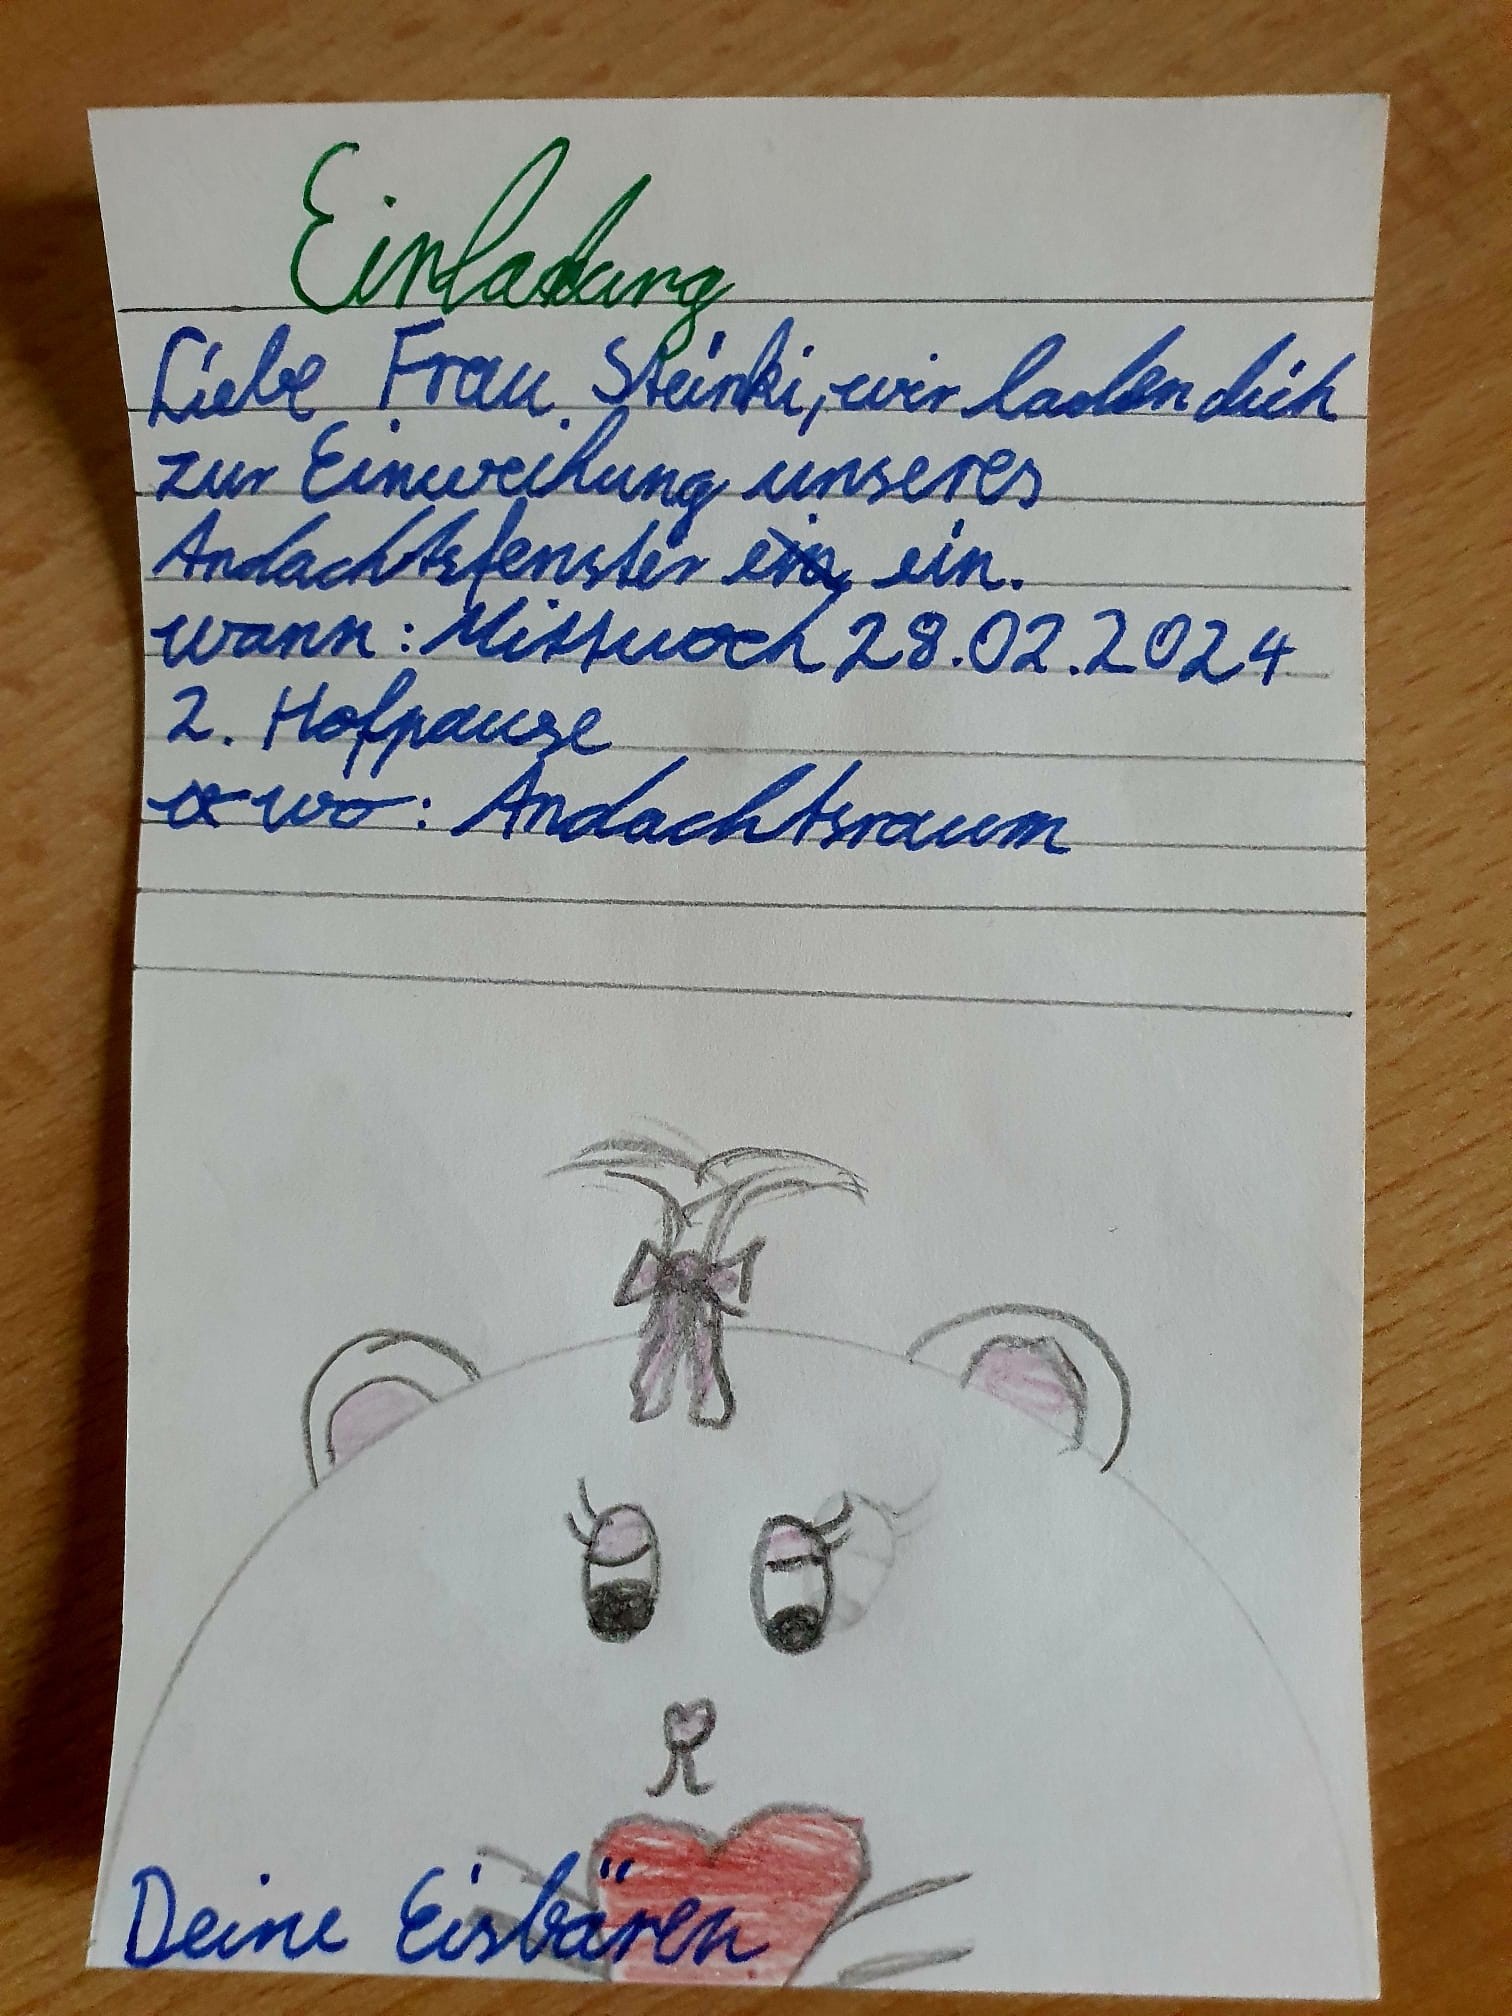 Einladung
Liebe Frau Steinki, wir laden dich
zur Einweihung unseres
Andachtsfenster ein ein.
wann: Mittwoch 28.02.2024
2. Hofpause
wo: Andachtsraum
Deine Eisbären